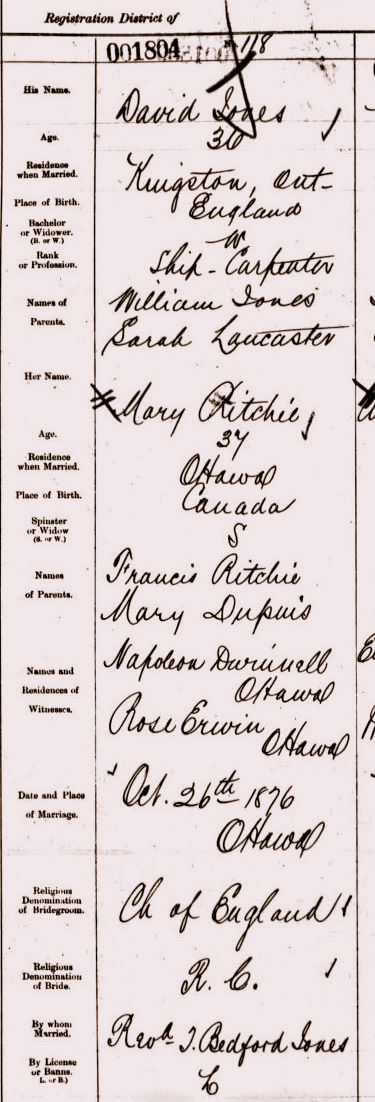 Registration District of
001804 118
His Name.
David Jones
Age.
36
Residence
when Married.
Kingston, Ont-
Place of Birth.
England
Bachelor
or Widower.
(B. or W.)
W
Rank
or Profession.
Ship-Carpenter
Names of
Parents.
William Jones
Sarah Lancaster
Her Name.
Mary Ritchie
Age.
37
Residence
when Married.
Ottawa
Place of Birth.
Canada
Spinster
or Widow
(S. or W.)
S
Names
of Parents.
Francis Ritchie
Mary Dupuis
Names and
Residences of
Witnesses.
Napoleon
Ottawa
Rose Erwin
Ottawa
Date and Place
of Marriage.
Oct. 26th 1876
Ottawa
Religious
Denomination
of Bridegroom.
Ch of England
Religious
Denomination
of Bride.
R. C.
By whom
Married.
Revd T. Bedford Jones
By License
or Banns.
L. or B.)
L